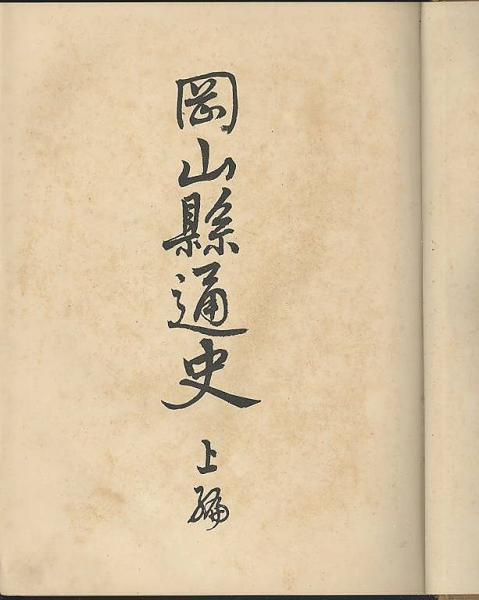 岡山縣通史 上編